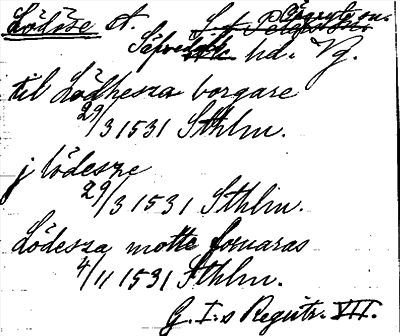 Lödöse st.
Sävedals hd. Vg.
til Lödhesza borgare
29/3 1531 Sthlm.
j lödesze
29/3 1531 Sthlm.
Lödesza motte foruaras
4/11 1531 Sthlm.
G. I:s Registr. VII.